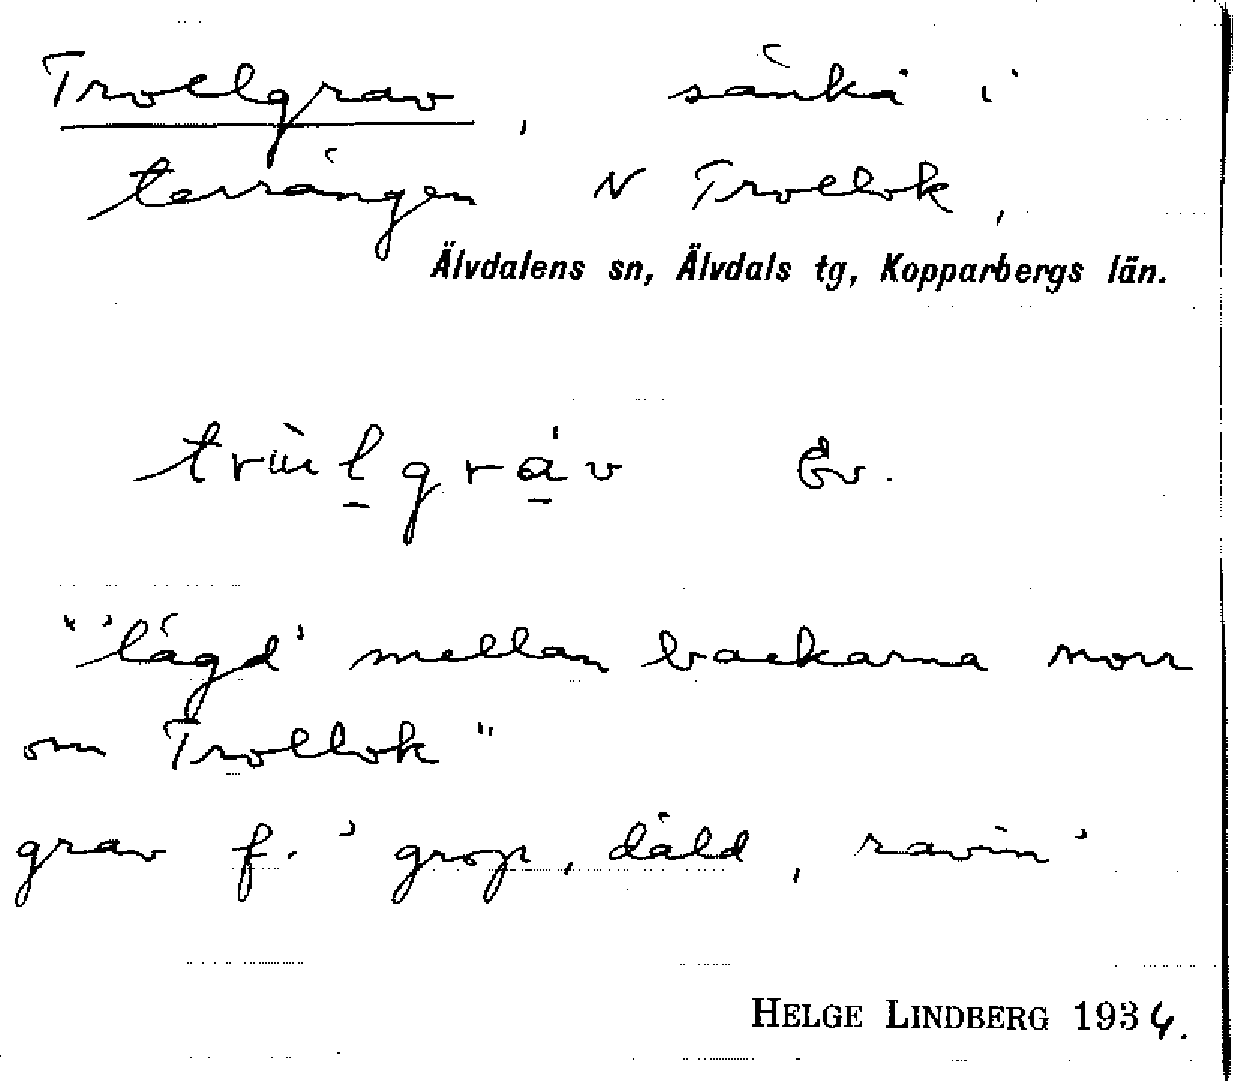 Trollgrav, sänka i
terrängen N Trollok,
Älvdalens sn, Älvdals tg, Kopparbergs län.
Ev.
"'lägd' mellan backarna norr
om Trollok"
grav f. 'grop, däld, ravin'
HELGE LINDBERG 1934.